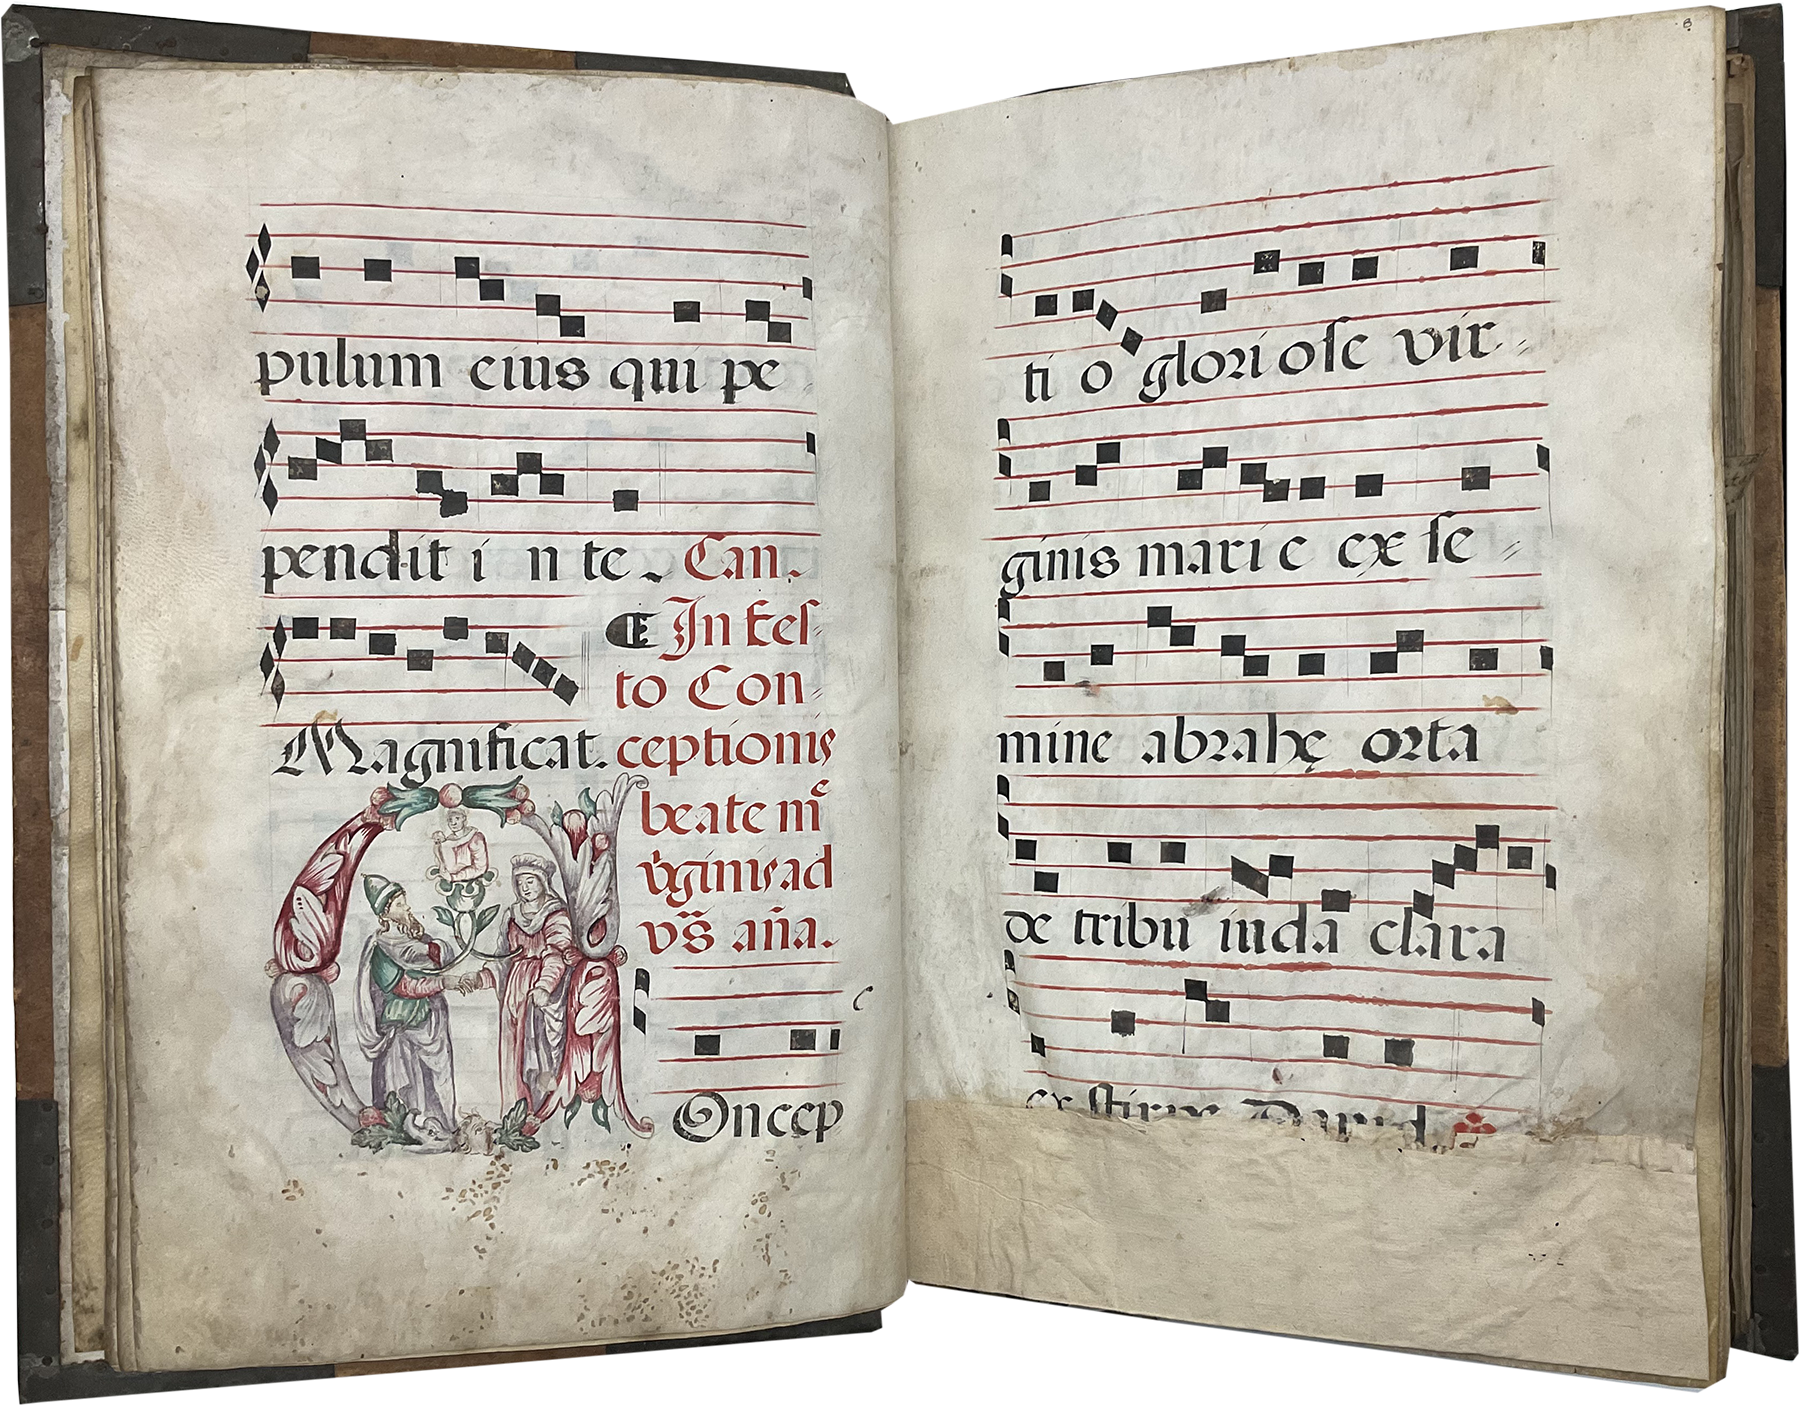 pulum eius qui pe
pendit i n te. Can.
¶ In fes-
to Con-
Magnificat. ceptionis
beate mͤ
v̾ginis ad
vs̈ an̄a.
Oncep
8
ti o glori oſe vir-
ginis mari e ex ſe
mine abrahę orta
de tribu iuda clara
ex ſtirpe Dauid.